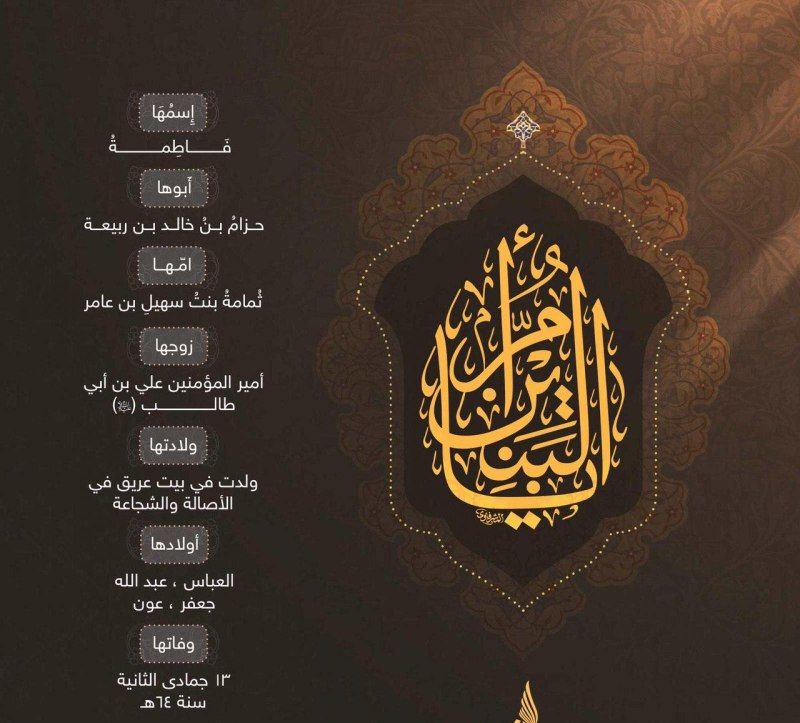 إِسمُهَا
فَـــاطِمـــةُ
أَبوها
حـزامُ بـنُ خالـد بـن ربيعـة
امّـهـا
ثُمامةُ بنتُ سهيلِ بن عامر
زوجها
أمير المؤمنين علي بن أبي
طالـــــب (ﷺ)
ولادتها
ولدت في بيت عريق في
الأصالة والشجاعة
أولادها
العباس ، عبد الله
جعفر ، عون
وفاتها
١٣ جمادى الثانية
سنة ٦٤هـ
يا أم البنين